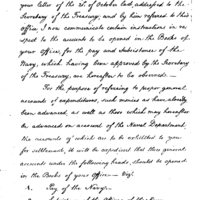 your letter of the 20th of October last, addressed to the
Secretary of the Treasury, and by him referred to this
office, I now communicate certain instructions in re-
spect to the accounts to be opened in the Books of
your office, for the pay and Subsistence of the
Navy, which having been approved by the Secretary
of the Treasury, are hereafter to be observed —
For the purpose of referring to proper general
accounts of expenditures, such monies as have already
been advanced, as well as those which may hereafter
be advanced on account of the Naval Department,
the accounts of which are to be exhibited to you
for settlement, it will be expedient that these general
accounts under the following heads, should be opened
in the Books of your Office — Viz:
1. Pay of the Navy.